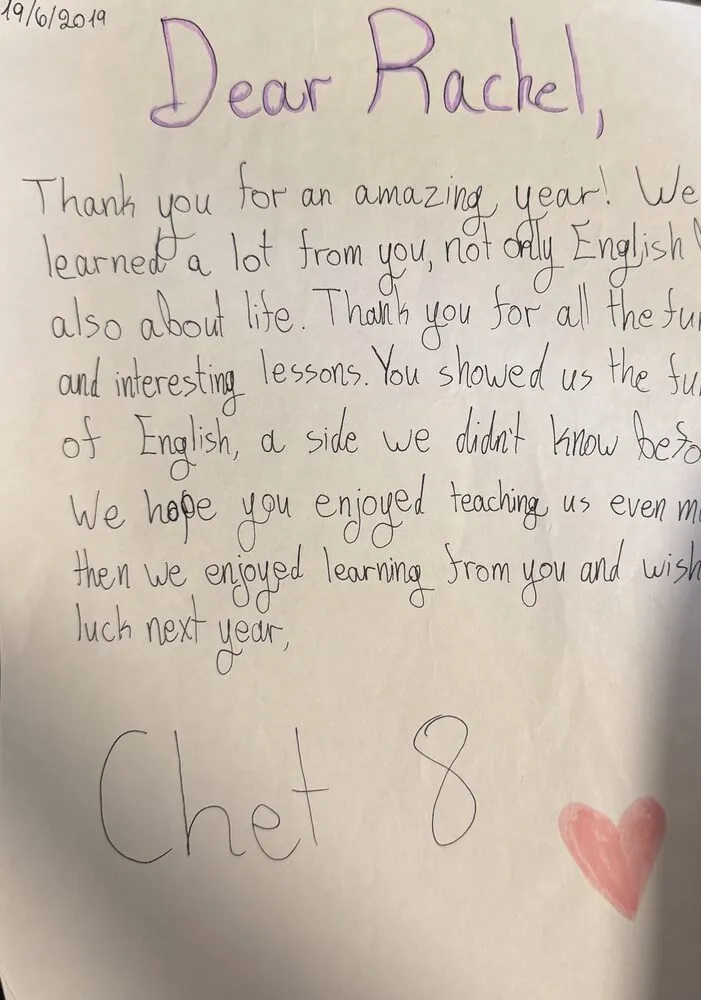 19/6/2019
Dear Rachel,
Thank you for an amazing year! We
learned a lot from you, not only English
also about life. Thank you for all the fu
and interesting lessons. You showed us the fu
of English, a side we didn't know befo
We hope you enjoyed teaching us even m
then we enjoyed learning from you and wish
luck next year,
Chet 8